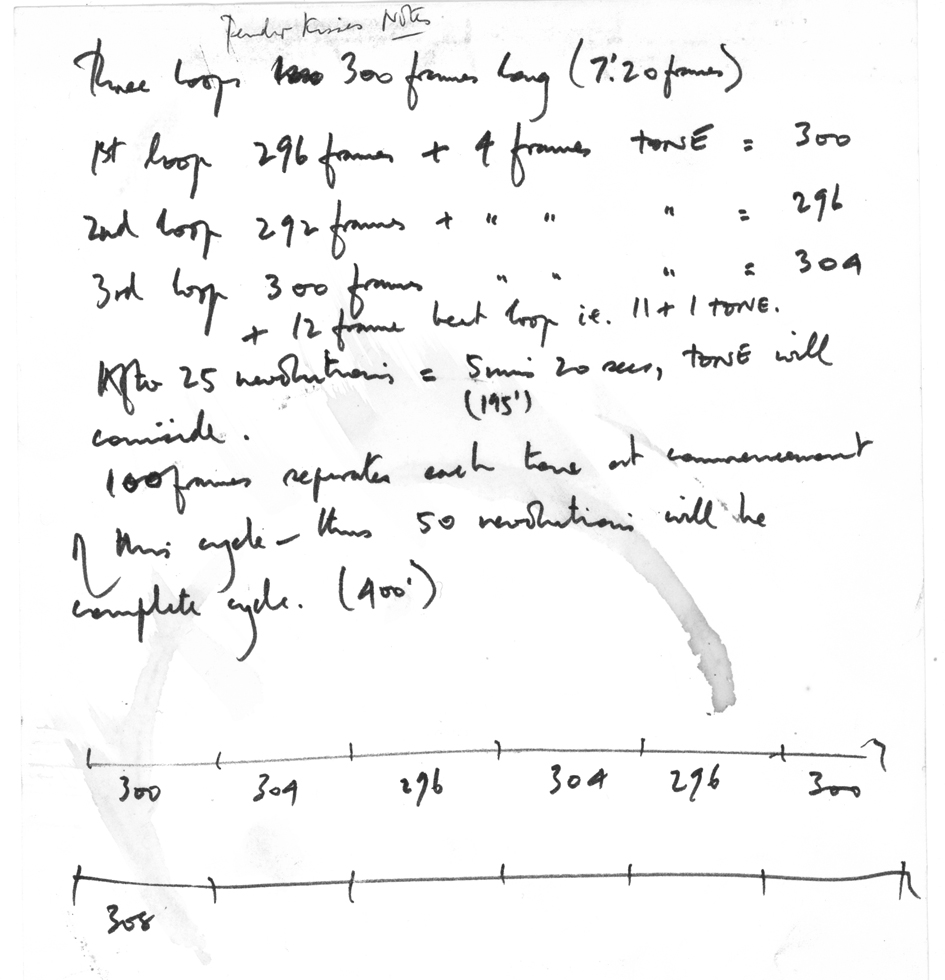 Tender Kisses Notes
Three loops 300 frames long (7'.20 frames)
1st loop 296 frames + 4 frames TONE = 300
2nd loop 292 frames + " " " = 296
3rd loop 300 frames " " " = 304
+ 12 frame beat loop ie. 11 + 1 TONE.
After 25 revolutions = 5 mins 20 secs, TONE will
(195')
coincide.
100 frames separates each tone at commencement
of this cycle – thus 50 revolutions will be
complete cycle. (400')
300 304 296 304 296 300
308